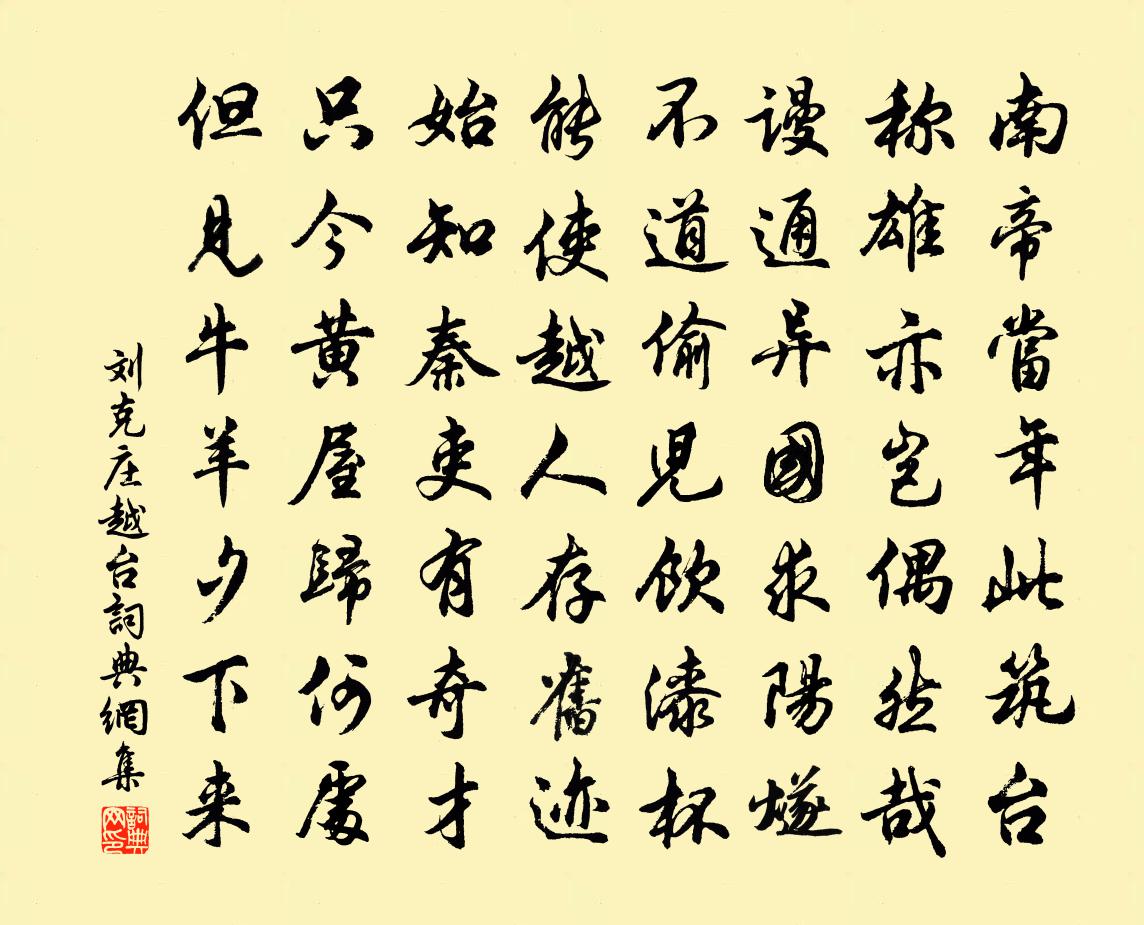 南帝當年此筑台
称雄亦岂偶然哉
谩通异國求陽燧
不道偷児飲漆杯
能使越人存舊迹
始知秦吏有奇才
只今黄屋歸何處
但見牛羊夕下来
刘克庄越台詞典網集
詞典